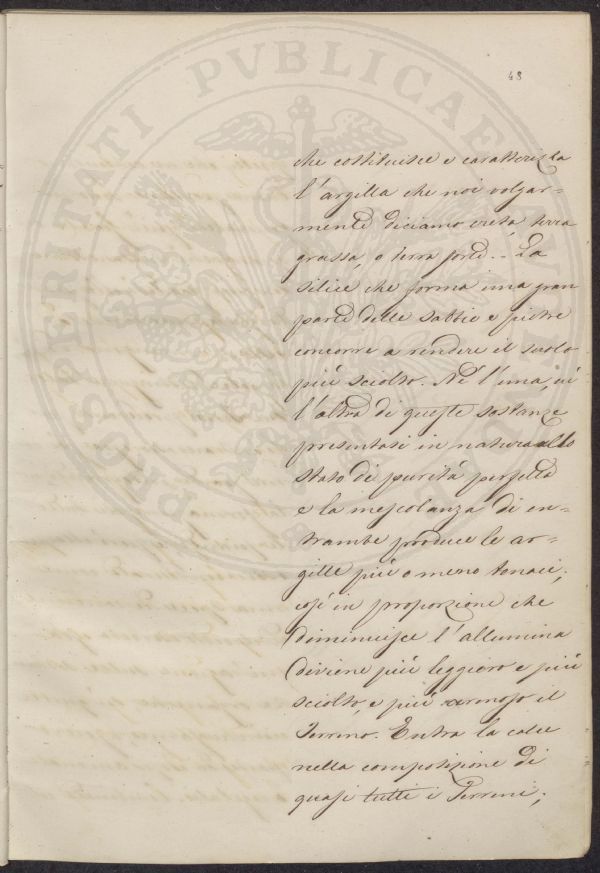 48
che costituisce e caratterizza
l'argilla che noi volgar=
mente diciamo creta terra
grassa, o terra forte. - La
silice che forma una gran
parte delle sabbie e pietre
concorre a rendere il suolo
più sciolto. Nè l'una, nè
l'altra di queste sostanze
presentasi in natura allo
stato di purità perfetta
e la mescolanza di en=
trambe produce le ar=
gille più o meno tenaci;
così in proporzione che
diminuisce l'allumina
diviene più leggiero e più
sciolto, e più arenoso il
Terreno. Entra la calce
nella composizione di
quasi tutti i Terreni;
PROSPERITATI PVBLICAE AV